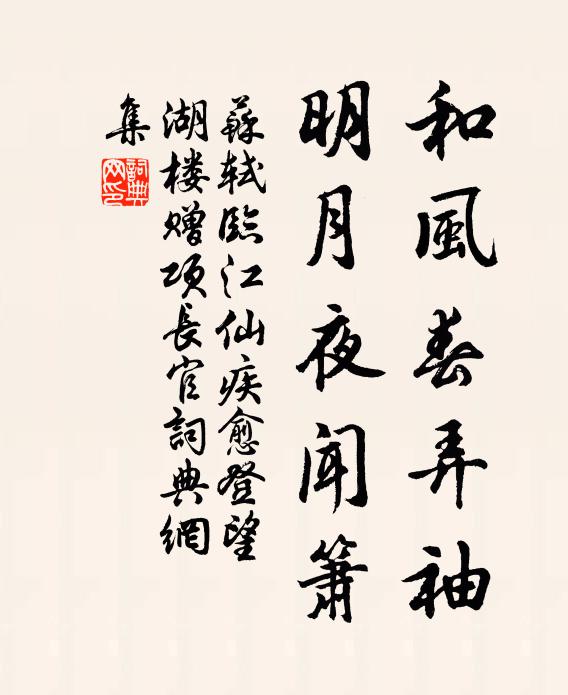 和風春弄袖
明月夜聞簫
蘇軾臨江仙疾愈登望
湖楼贈項長官詞典網
集
詞典網印